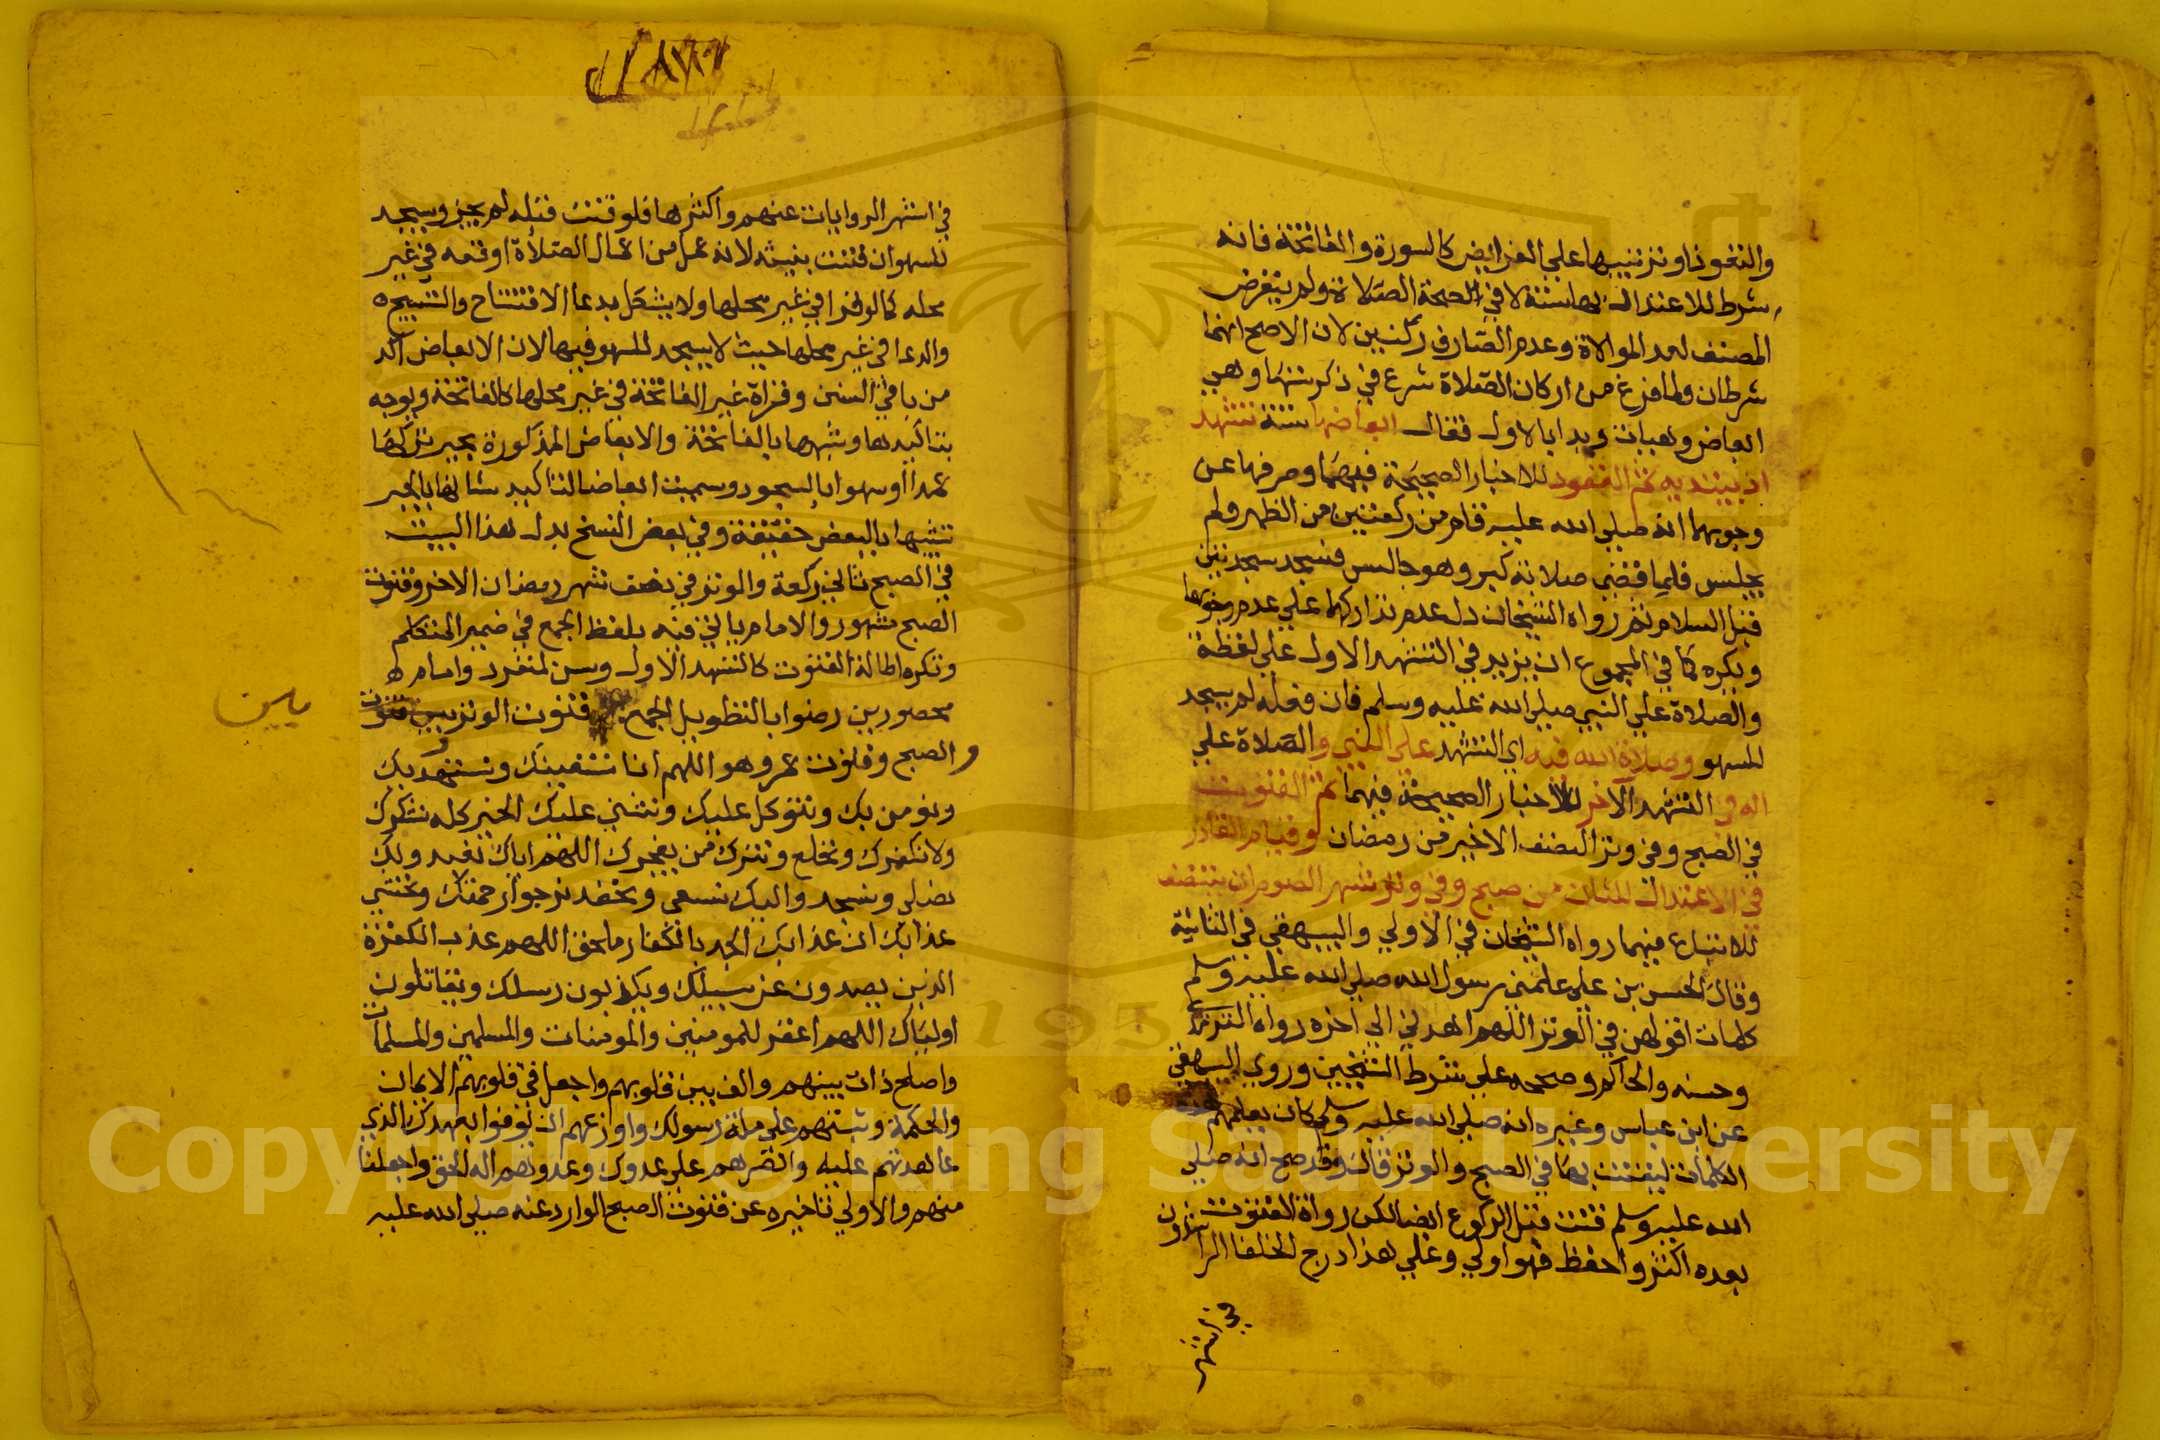 والنفوذ وترتيبها علي الفرايض كالسورة والفاتحة فانه
شرط للاعتداد بها سنة لا في صحة الصلاة ولم يتعرض
المصنف لعد الموالاة وعدم الصارف ركنين لان الاصح انهما
شرطان ولما فرغ من اركان الصلاة شرع في ذكر سننها وهي
ابعاض وهيات وبدا بالاول فقال ابعاضها ستة تشهد
اذ يبتديه ثم القعود للاخبار الصحيحة فيهما وصرفها عن
وجوبهما انه صلي الله عليه قام من ركعتين من الظهر ولم
يجلس فلما قضي صلاته كبر وهو جالس فسجد سجدتين
قبل السلام ثم رواه الشيخان دل عدم تداركهما علي عدم وجوبهما
ويكره كما في المجموع ان يزيد في التشهد الاول علي لفظة
والصلاة علي النبي صلي الله عليه وسلم فان فعله لم يسجد
للسهو وصلاة الله فيه اي التشهد علي النبي والصلاة علي
اله في التشهد الاخر للاخبار الصحيحة فيهما ثم القنوت
في الصبح وفي وتر النصف الاخير من رمضان وقيام القادر
في الاعتدال للثان من صبح وفي وتر شهر الصوم ان ينتصف
للاتباع فيهما رواه الشيخان في الاولي والبيهقي في الثانية
وقال الحسن بن علي علمني رسول الله صلي الله عليه وسلم
كلمات اقولهن في الوتر اللهم اهدني الي اخره رواه الترمذي
وحسنه والحاكم وصححه علي شرط الشيخين وروي البيهقي
عن ابن عباس وغيره انه صلي الله عليه وسلم كان يعلمهم
الكلمات ليقنت بها في الصبح والوتر قال وقد صح انه صلي
الله عليه وسلم قنت قبل الركوع ايضا لكن رواة القنوت
بعده اكثر واحفظ فهو اولي وعلي هذا درج الخلفا الراشدون
في اشهر
في اشهر الروايات عنهم واكثرها فلو قنت قبله لم يجز ويسجد
للسهو ان قنت بنيته لانه عمل من اعمال الصلاة اوقعه في غير
محله كما لو قرا في غير محلها ولا يشكل بدعا الافتتاح والتسبيح
والدعا في غير محلها حيث لا يسجد للسهو فيها لان الابعاض اكد
من باقي السنن وقراة غير الفاتحة في غير محلها كالفاتحة ويوجه
بتاكيدها وشبهها بالفاتحة والابعاض المذكورة يجبر تركها
عمدا او سهوا بالسجود وسميت ابعاضا لتاكيد شانها بالجبر
تشبيها بالبعض حقيقة وفي بعض النسخ بدل هذا البيت
في الصبح ثاني ركعة والوتر في نصف شهر رمضان الاخر وقنوت
الصبح مشهور والامام ياتي فيه بلفظ الجمع في ضمير المتكلم
وتكره اطالة القنوت كالتشهد الاول وسن لمنفرد وامام
محصورين رضوا بالتطويل الجمع قنوت الوتر بين قنوت
مين
الصبح وقنوت عمر وهو اللهم انا نستعينك ونستهديك
ونومن بك ونتوكل عليك ونثني عليك الخير كله نشكرك
ولا نكفرك ونخلع ونترك من يفجرك اللهم اياك نعبد ولك
نصلي ونسجد واليك نسعي ونحفد نرجوا رحمتك ونخشي
عذابك ان عذابك الجد بالكفار ملحق اللهم عذب الكفرة
الذين يصدون عن سبيلك ويكذبون رسلك ويقاتلون
اولياك اللهم اغفر للمومنين والمومنات والمسلمين والمسلمات
واصلح ذات بينهم والف بين قلوبهم واجعل في قلوبهم الايمان
والحكمة وثبتهم علي ملة رسولك واوزعهم ان يوفوا بعهدك الذي
عاهدتهم عليه وانصرهم علي عدوك وعدوهم اله الحق واجعلنا
منهم والاولي تاخيره عن قنوت الصبح الوارد عنه صلي الله عليه
1957
Copyright © King Saud University